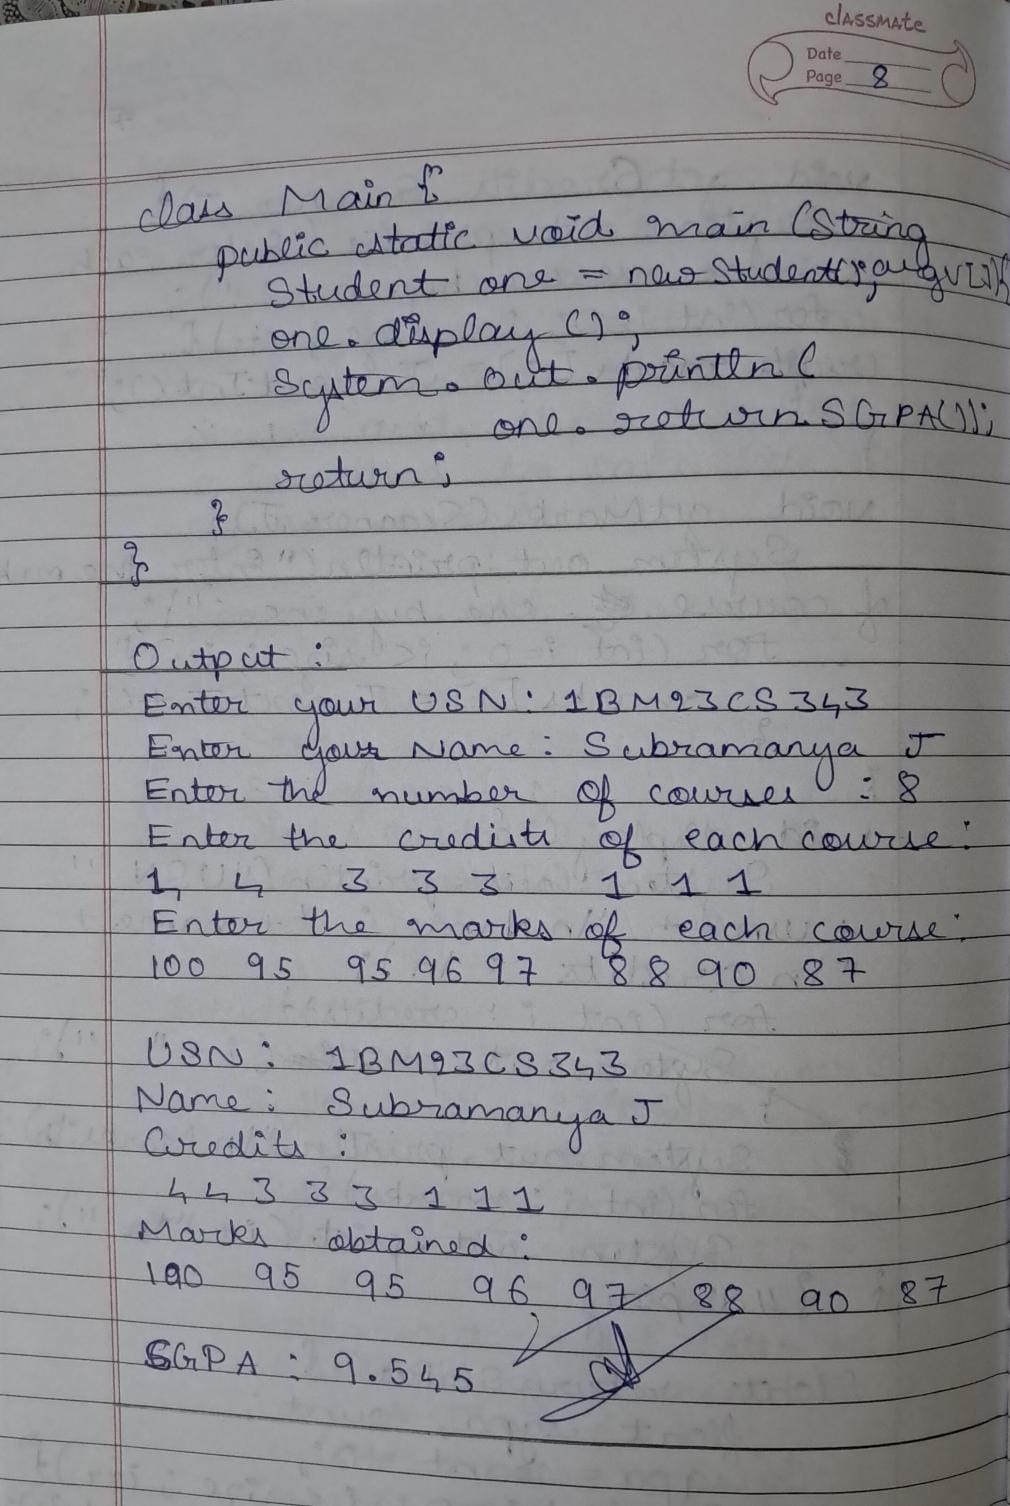 classmate
Date
Page 8
class Main {
public static void main (String
Student one = new Student(); argv[]){
one.display();
System.out.println(
one.returnSGPA());
return;
}
}
Output:
Enter your USN: 1BM23CS343
Enter your Name: Subramanya J
Enter the number of courses : 8
Enter the credits of each course:
4 4 3 3 3 1 1 1
Enter the marks of each course:
100 95 95 96 97 88 90 87
USN: 1BM23CS343
Name: Subramanya J
Credits:
4 4 3 3 3 1 1 1
Marks obtained:
100 95 95 96 97 88 90 87
SGPA: 9.545